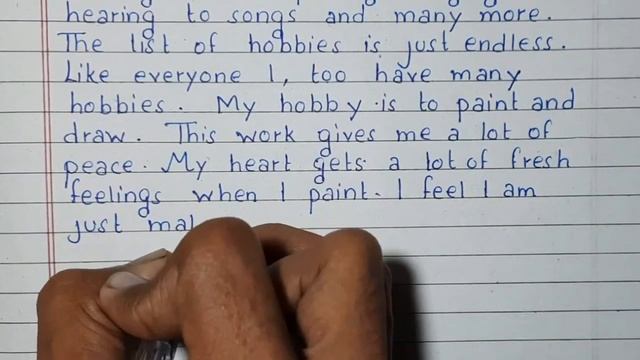 hearing to songs and many more.
The list of hobbies is just endless.
Like everyone I, too have many
hobbies. My hobby is to paint and
draw. This work gives me a lot of
peace. My heart gets a lot of fresh
feelings when I paint. I feel I am
just mal